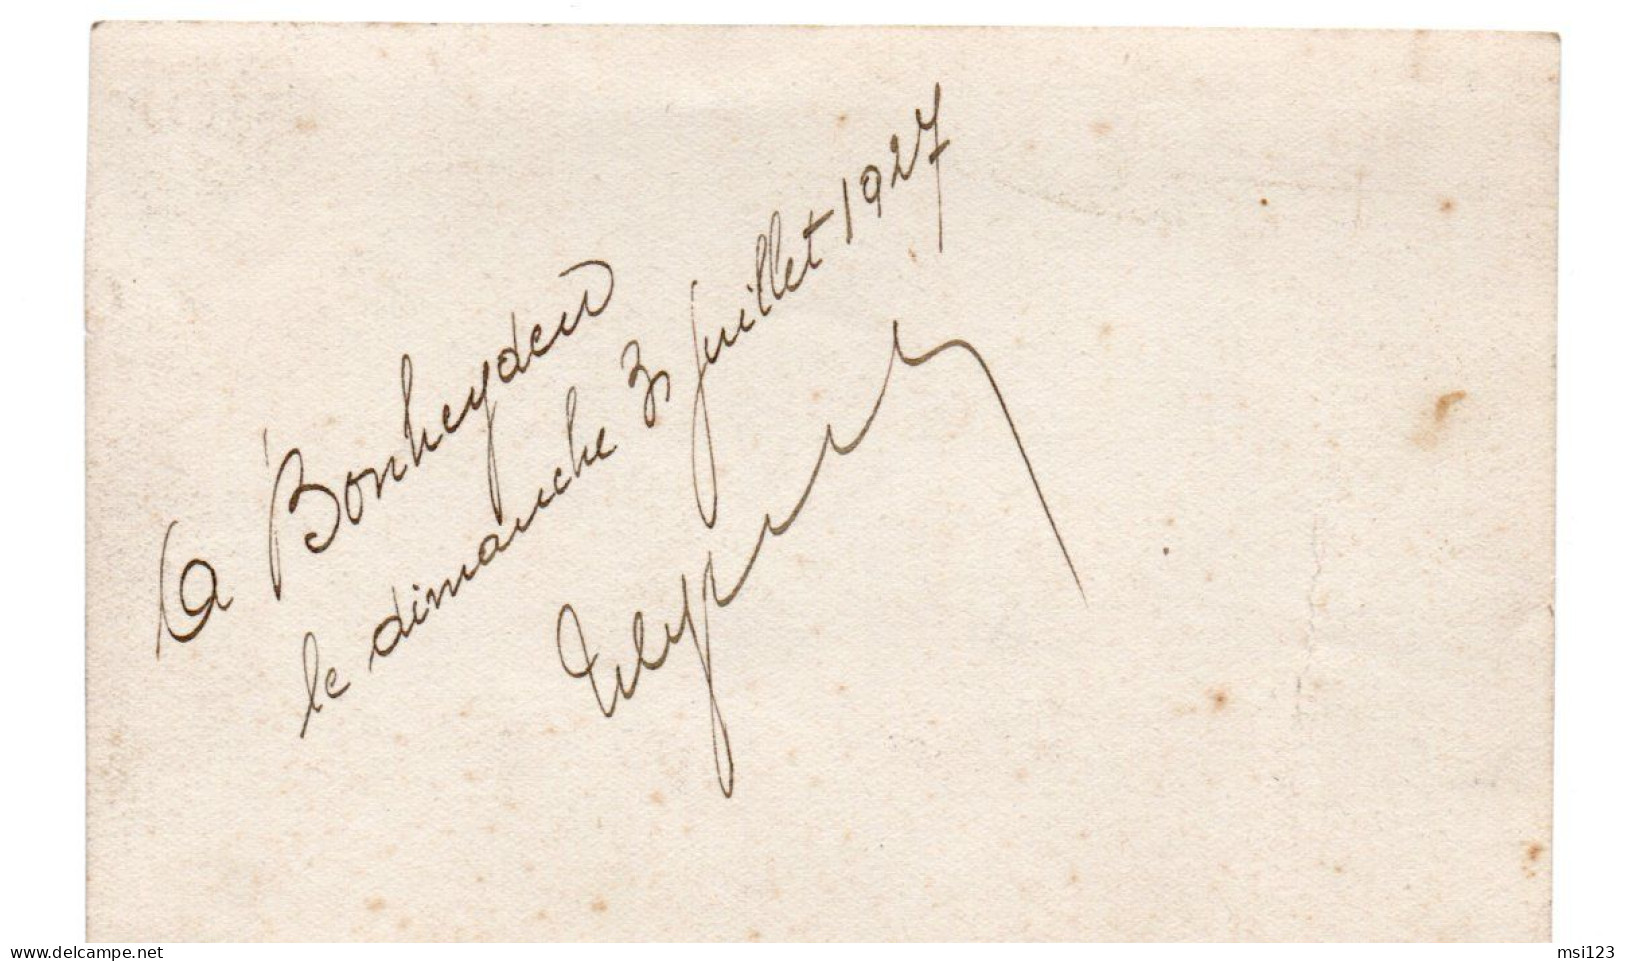 à Bonheyden
le dimanche 3 juillet 1927
www.delcampe.net
msi123